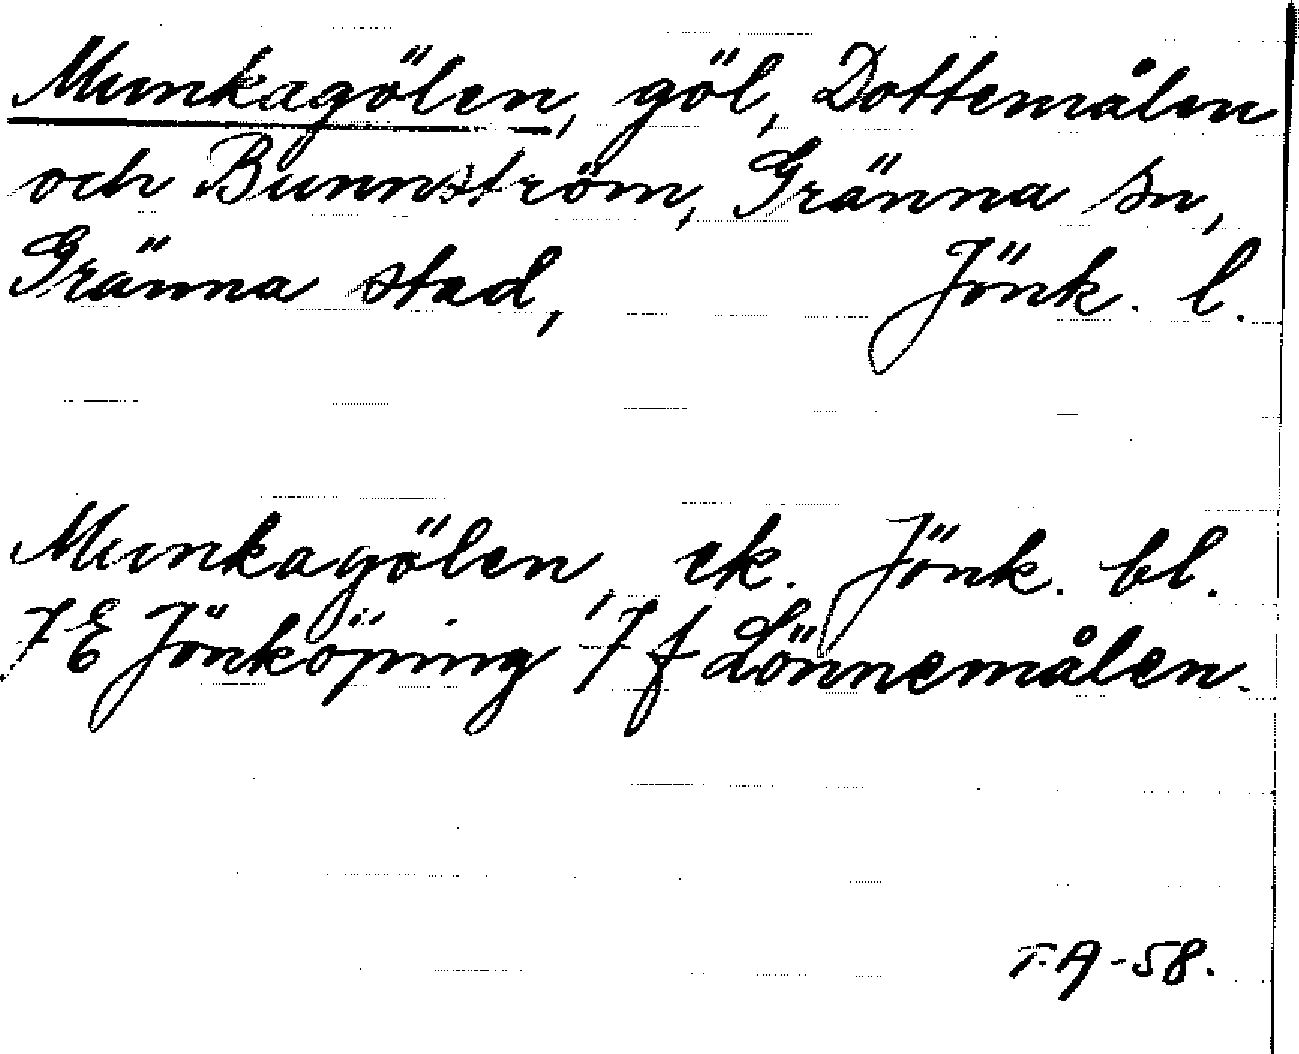 Munkagölen, göl, Dottemålen
och Bunnström, Gränna sn,
Gränna stad, Jönk. l.
Munkagölen, ek. Jönk. bl.
7E Jönköping 7f Lönnemålen.
T.A-58.